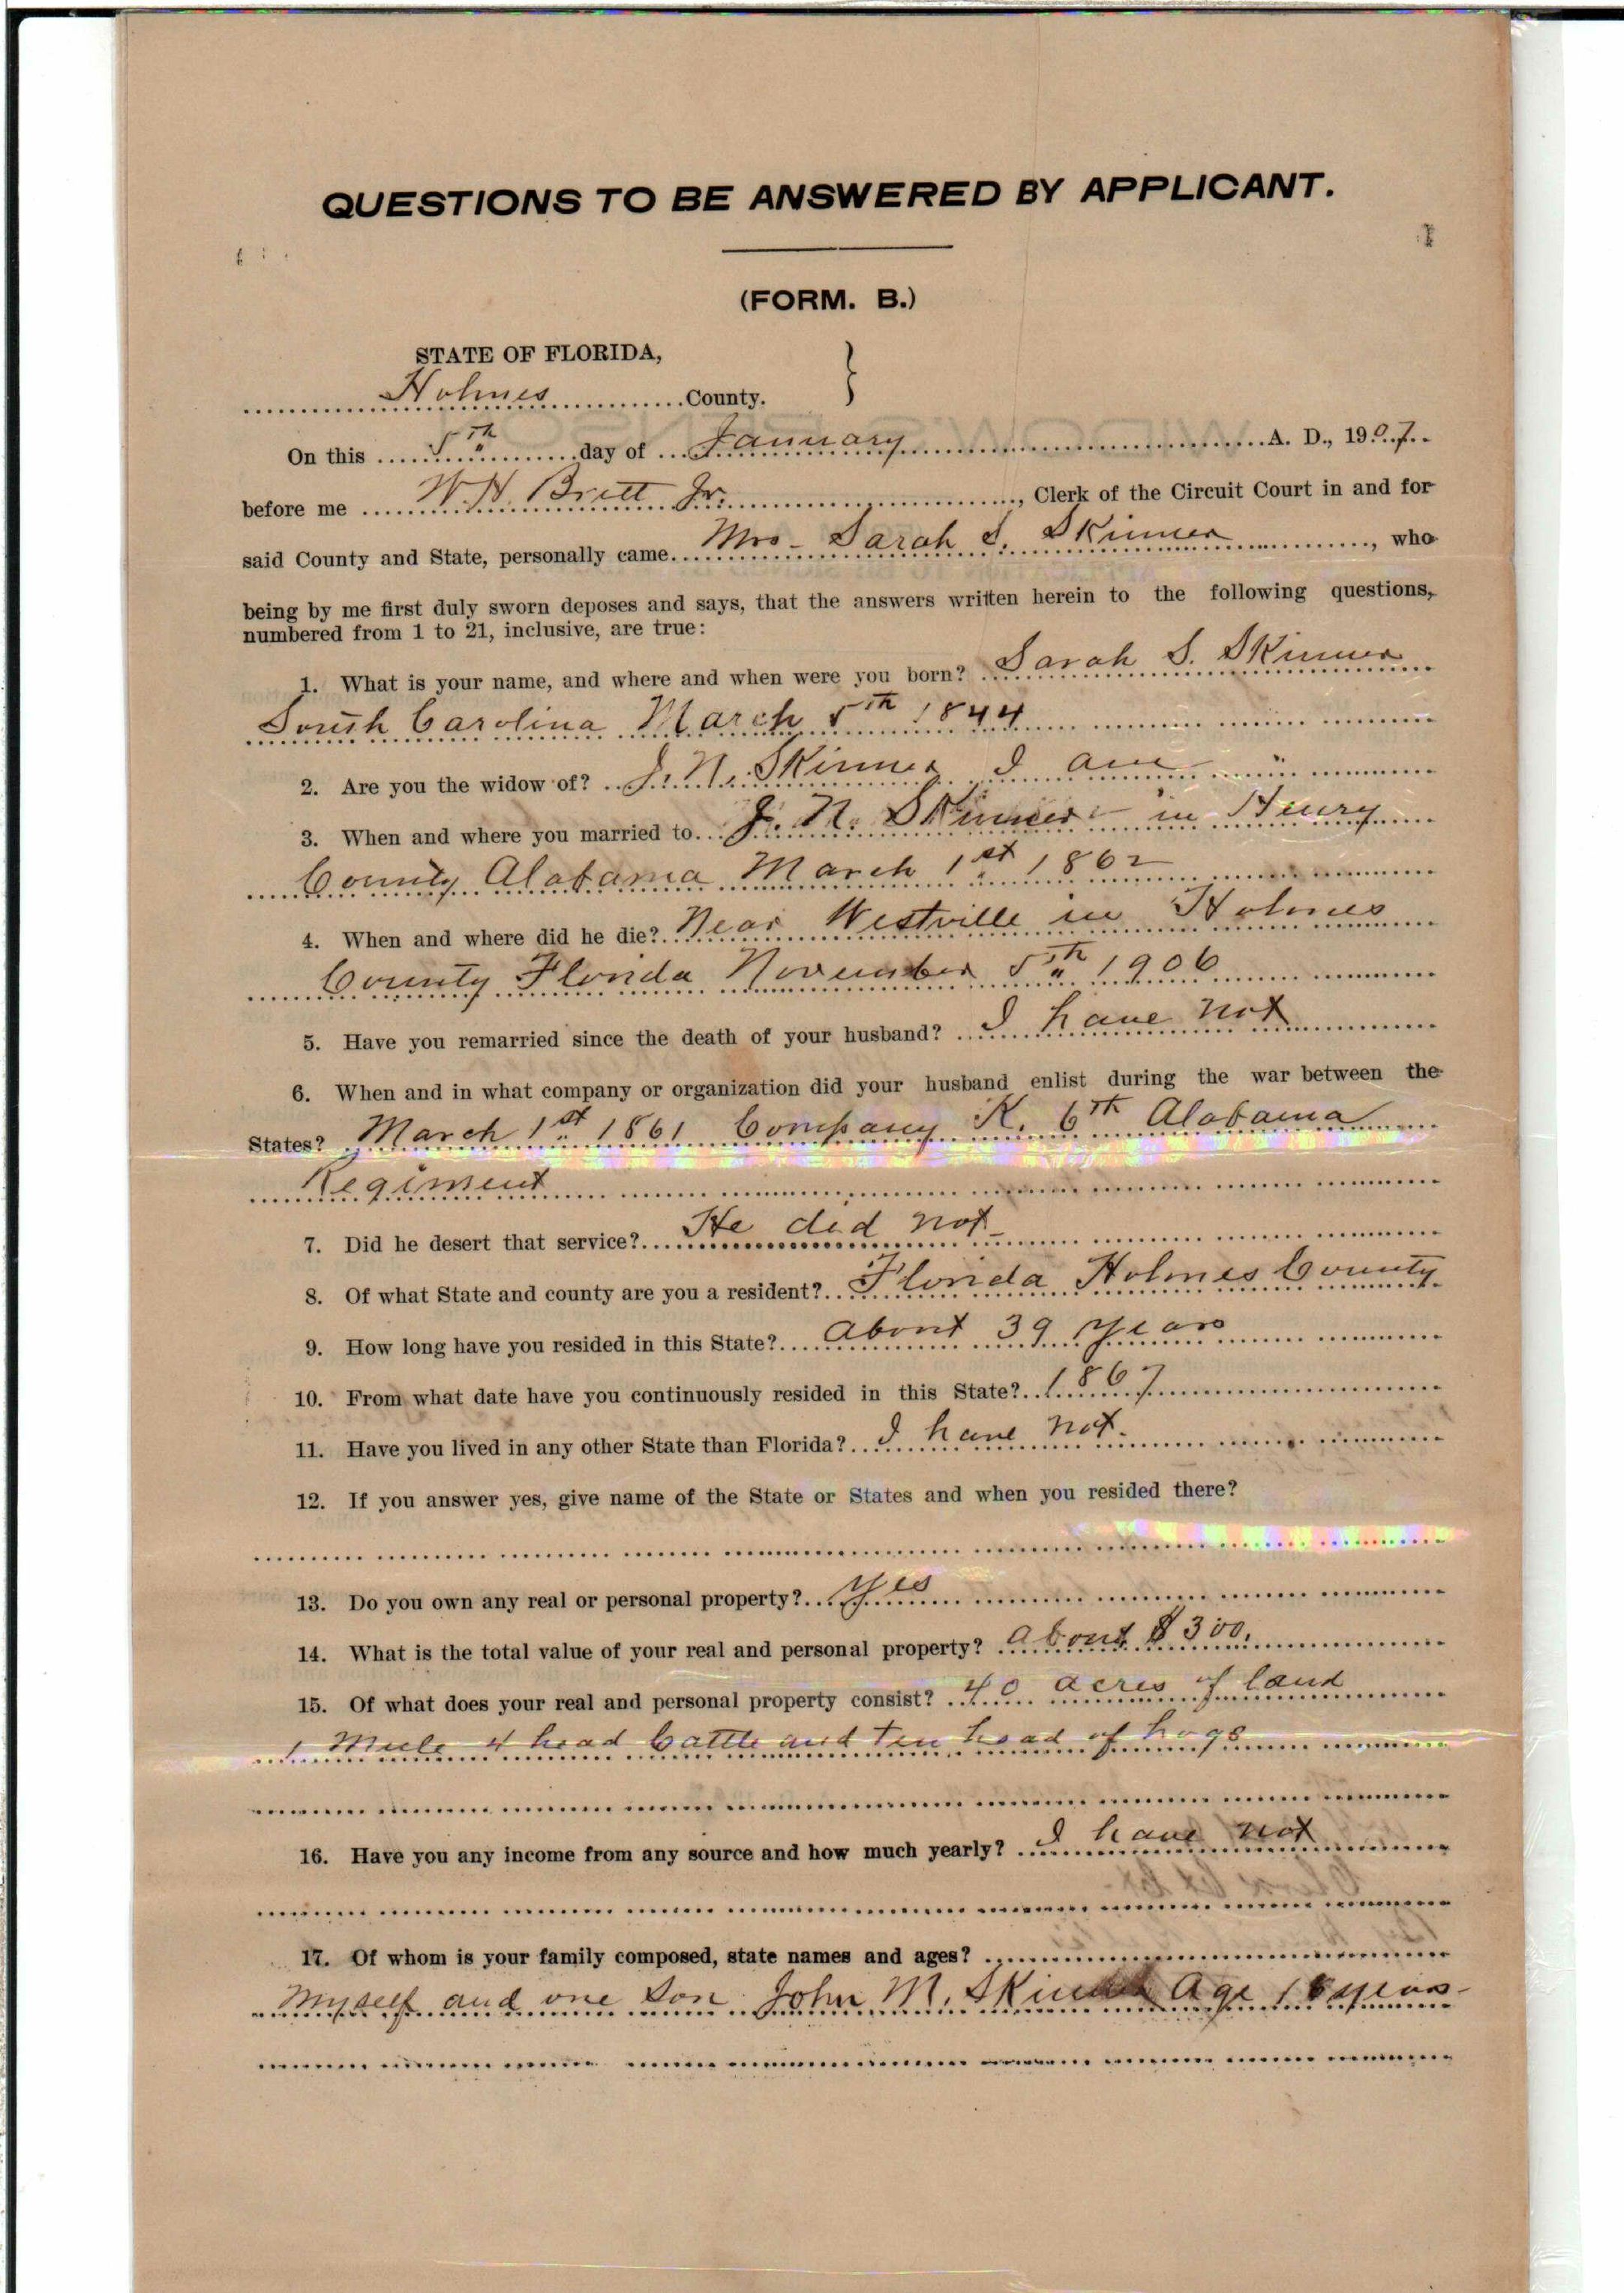 QUESTIONS TO BE ANSWERED BY APPLICANT.
(FORM. B.)
STATE OF FLORIDA,
Holmes County. }
On this 5th day of January A. D., 1907
before me W. H. Britt Jr. , Clerk of the Circuit Court in and for
said County and State, personally came Mrs - Sarah S. Skinner , who
being by me first duly sworn deposes and says, that the answers written herein to the following questions,
numbered from 1 to 21, inclusive, are true:
1. What is your name, and where and when were you born? Sarah S. Skinner
South Carolina March 5th 1844
2. Are you the widow of? J. N. Skinner I am
3. When and where you married to J. N. Skinner - in Henry
County Alabama March 1st 1862
4. When and where did he die? Near Westville in Holmes
County Florida November 5th 1906
5. Have you remarried since the death of your husband? I have not
6. When and in what company or organization did your husband enlist during the war between the
States? March 1st 1861 Company K. 6th Alabama
Regiment
7. Did he desert that service? He did not -
8. Of what State and county are you a resident? Florida Holmes County
9. How long have you resided in this State? about 39 years
10. From what date have you continuously resided in this State? 1867
11. Have you lived in any other State than Florida? I have not.
12. If you answer yes, give name of the State or States and when you resided there?
13. Do you own any real or personal property? yes
14. What is the total value of your real and personal property? about $300.
15. Of what does your real and personal property consist? 40 acres of land
1 Mule 4 head Cattle and ten head of hogs
16. Have you any income from any source and how much yearly? I have not
17. Of whom is your family composed, state names and ages?
Myself and one Son John M. Skinner Age years